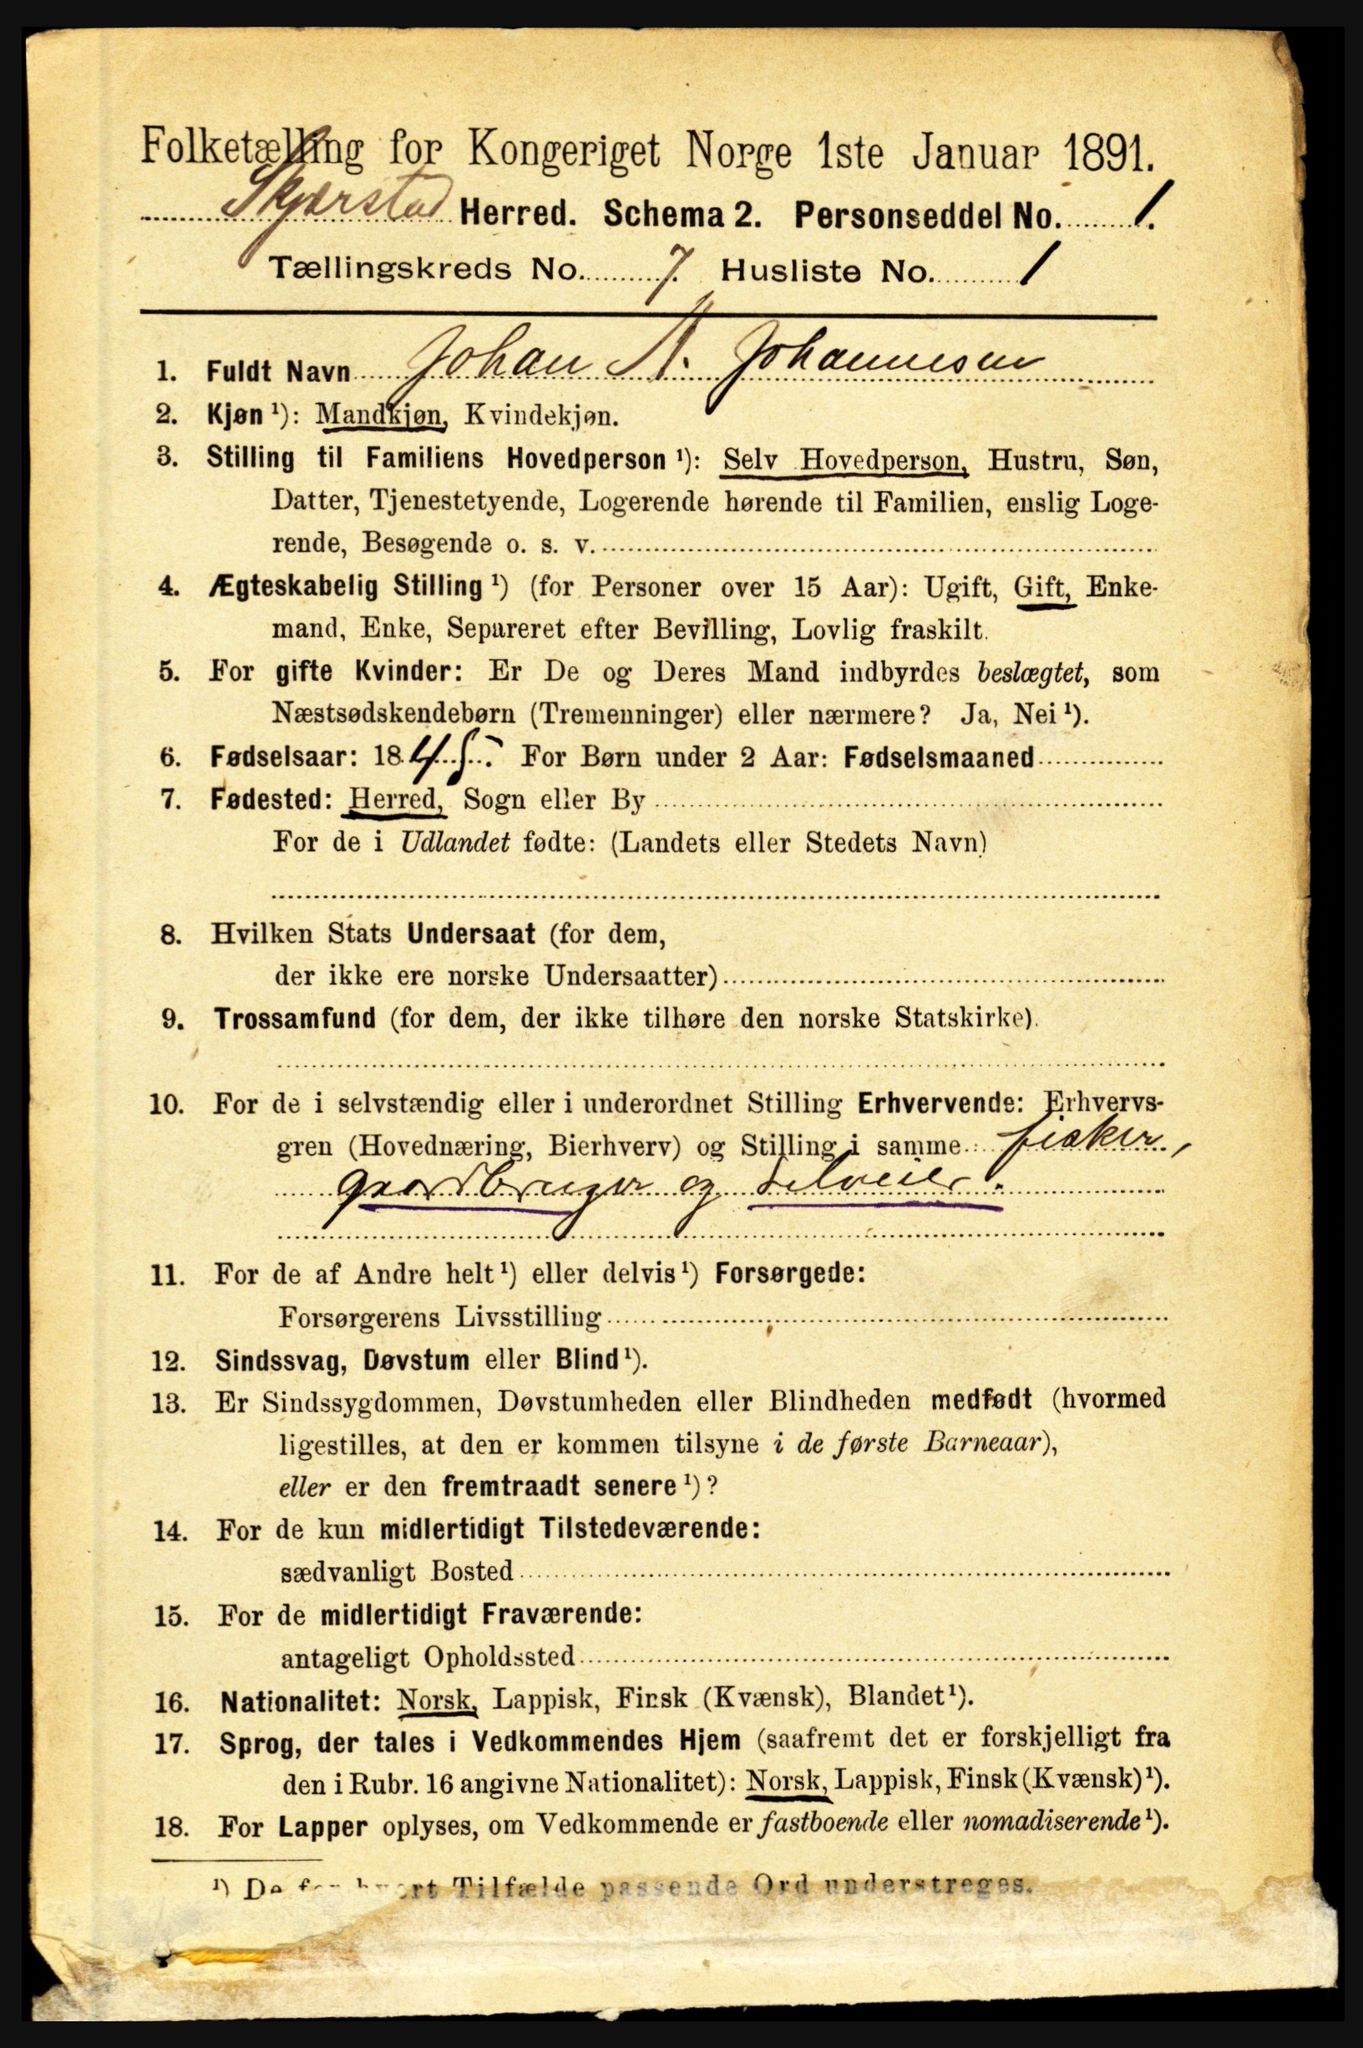 Folketælling for Kongeriget Norge 1ste Januar 1891.
Skjærstad Herred. Schema 2. Personseddel No. 1.
Tællingskreds No. 7. Husliste No. 1
1. Fuldt Navn Johan A. Johannesen
2. Kjøn ¹): Mandkjøn, Kvindekjøn.
3. Stilling til Familiens Hovedperson ¹): Selv Hovedperson, Hustru, Søn,
Datter, Tjenestetyende, Logerende hørende til Familien, enslig Loge-
rende, Besøgende o. s. v.
4. Ægteskabelig Stilling ¹) (for Personer over 15 Aar): Ugift, Gift, Enke-
mand, Enke, Separeret efter Bevilling, Lovlig fraskilt.
5. For gifte Kvinder: Er De og Deres Mand indbyrdes beslægtet, som
Næstsødskendebørn (Tremenninger) eller nærmere? Ja, Nei ¹).
6. Fødselsaar: 1845. For Børn under 2 Aar: Fødselsmaaned
7. Fødested: Herred, Sogn eller By
For de i Udlandet fødte: (Landets eller Stedets Navn)
8. Hvilken Stats Undersaat (for dem,
der ikke ere norske Undersaatter)
9. Trossamfund (for dem, der ikke tilhøre den norske Statskirke).
10. For de i selvstændig eller i underordnet Stilling Erhvervende: Erhvervs-
gren (Hovednæring, Bierhverv) og Stilling i samme fisker,
gaardbruger og selveier.
11. For de af Andre helt ¹) eller delvis ¹) Forsørgede:
Forsørgerens Livsstilling
12. Sindssvag, Døvstum eller Blind ¹).
13. Er Sindssygdommen, Døvstumheden eller Blindheden medfødt (hvormed
ligestilles, at den er kommen tilsyne i de første Barneaar),
eller er den fremtraadt senere ¹)?
14. For de kun midlertidigt Tilstedeværende:
sædvanligt Bosted
15. For de midlertidigt Fraværende:
antageligt Opholdssted
16. Nationalitet: Norsk, Lappisk, Finsk (Kvænsk), Blandet ¹).
17. Sprog, der tales i Vedkommendes Hjem (saafremt det er forskjelligt fra
den i Rubr. 16 angivne Nationalitet): Norsk, Lappisk, Finsk (Kvænsk) ¹).
18. For Lapper oplyses, om Vedkommende er fastboende eller nomadiserende ¹).
¹) De for hvert Tilfælde passende Ord understreges.